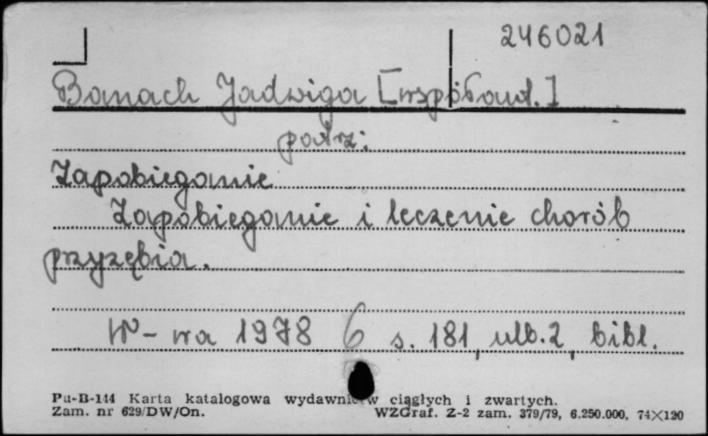 246021
Banach Jadwiga [współaut.]
patrz:
Zapobieganie
Zapobieganie i leczenie chorób
przyzębia.
W-wa 1978 6 s. 181, ulb. 2, bibl.
Pu-B-144 Karta katalogowa wydawnictw ciągłych i zwartych.
Zam. nr 629/DW/On. WZGraf. Z-2 zam. 379/79, 6.250.000, 74×120